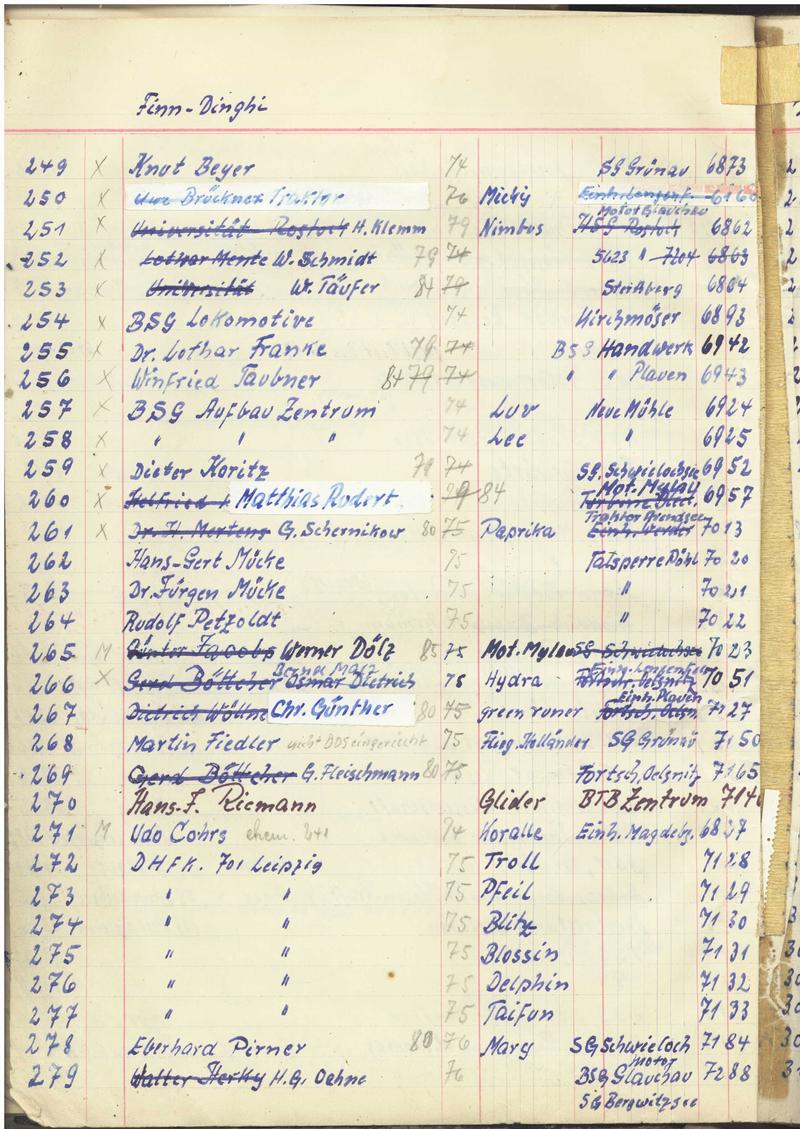 Finn-Dinghi
249 X Knut Beyer 74 SG Grünau 6873
250 X Uwe Brückner Traktor 76 Micky 6160
Motor Glauchau
251 X Universität Rostock H. Klemm 79 Nimbus HSG Rostock 6862
252 X Lothar Mente W. Schmidt 79 74 5623 " 7204 6863
253 X Universität W. Täufer 84 79 6864
254 X BSG Lokomotive 74 Kirchmöser 6893
255 X Dr. Lothar Franke 79 74 BSG Handwerk 6942
256 X Winfried Taubner 84 79 74 " " Plauen 6943
257 X BSG Aufbau Zentrum 74 Luv Neue Mühle 6924
258 X " " " 74 Lee " 6925
259 X Dieter Koritz 79 74 SG. Schwielochsee 6952
Mot. Mylau
260 X Helfried Matthias Rudert 79 84 6957
Traktor Arendsee
261 X Dr. H. Mertens G. Schernikow 80 75 Paprika Einh. Werder 7013
262 Hans-Gert Mücke 75 Talsperre Pöhl 7020
263 Dr. Jürgen Mücke 75 " 7021
264 Rudolf Petzoldt 75 " 7022
265 M Günter Jacobs Werner Dölz 85 75 Mot. Mylau SG Schwielochsee 7023
266 X Gerd Böttcher Osmar Dietrich 75 Hydra Fortschr. Oelsnitz 7051
Einh. Plauen
267 Dietrich Wöllne Chr. Günther 80 75 green runer Fortsch. Oelsn. 7127
268 Martin Fiedler nicht DDS eingereicht 75 Flieg. Holländer SG Grünau 7150
269 Gerd Böttcher G. Fleischmann 80 75 Fortsch. Oelsnitz 7165
270 Hans-J. Riemann Glider BTB Zentrum 714
271 M Udo Cohrs ehem. 241 74 Koralle Einh. Magdebg. 6827
272 DHFK. 701 Leipzig 75 Troll 7128
273 " " 75 Pfeil 7129
274 " " 75 Blitz 7130
275 " " 75 Blossin 7131
276 " " 75 Delphin 7132
277 " " 75 Taifun 7133
278 Eberhard Pirner 80 76 Mary SG Schwieloch 7184
Motor
279 Walter Herky H.G. Oehne 76 BSG Glauchau 7288
SG Bergwitzsee